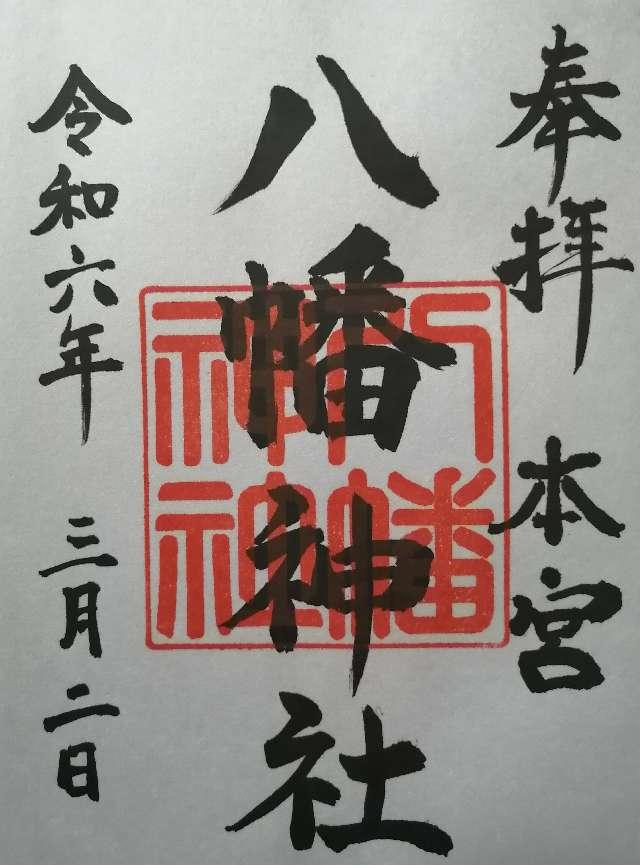 奉拝 本宮
八幡神社
八幡神社
令和六年 三月二日